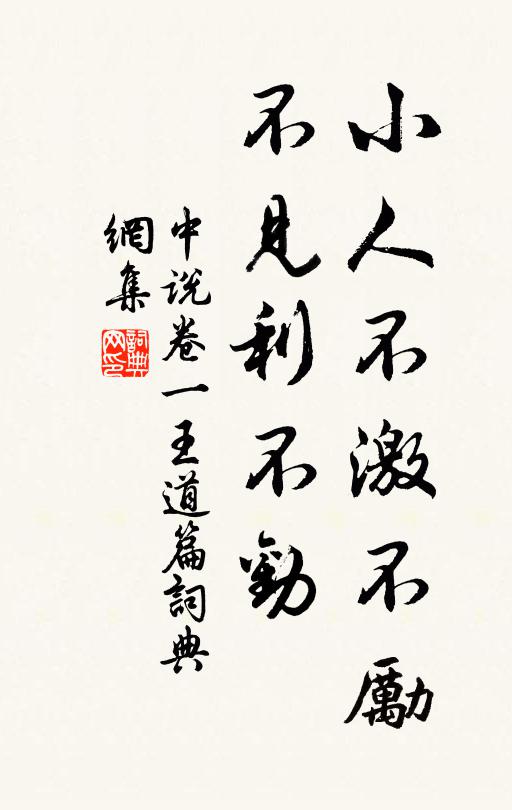 小人不激不勵
不見利不勸
中説卷一王道篇詞典
網集
詞典
网印